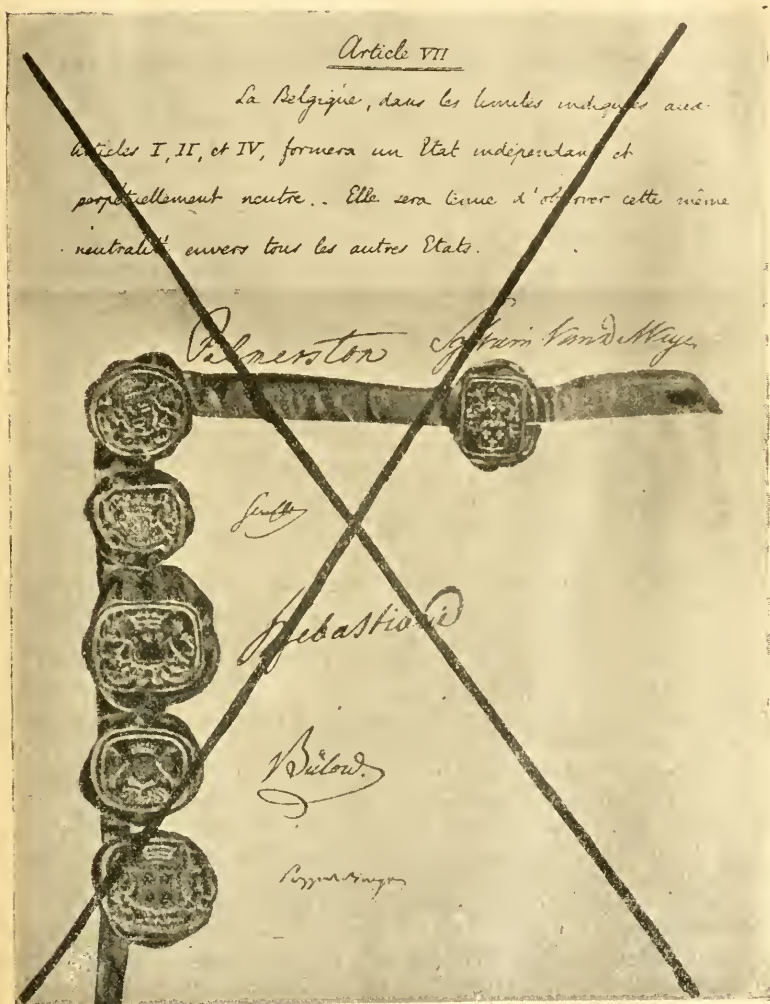 Article VII
La Belgique, dans les limites indiquées aux
articles I, II, et IV, formera un Etat indépendant et
perpétuellement neutre.. Elle sera tenue d'observer cette même
neutralité envers tous les autres Etats.
Palmerston Sylvain Van de Weyer
Senfft
H Sebastiani
Bülow.
Pozzo di Borgo